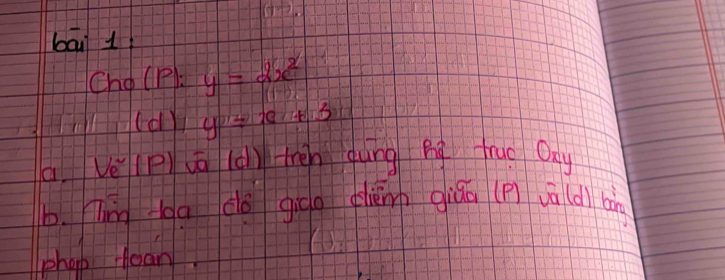 bài 1:
Cho (P): y = 2x²
(d) y = x + 3
a. Vẽ (P) và (d) trên cùng hệ trục Oxy
b. Tìm tọa độ giao điểm giữa (P) và (d) bằng
phép toán.